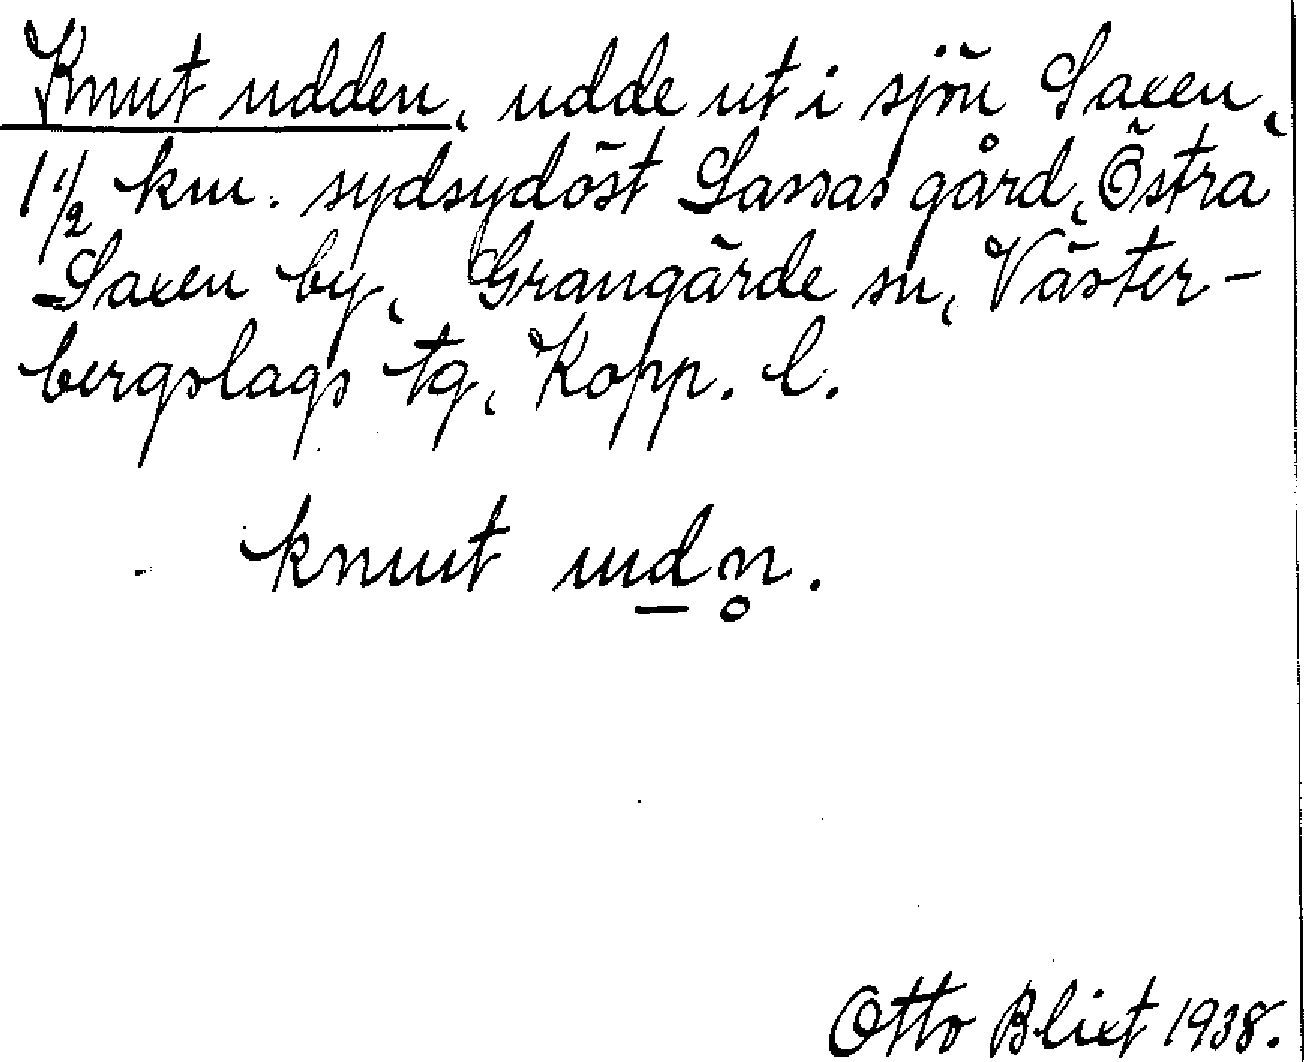 Knut udden, udde ut i sjön Saxen,
1 1/2 km. sydsydöst Lassas gård, Östra
Saxen by, Grangärde sn, Väster-
bergslags tg, Kopp. l.
knut ud̲n̥.
Otto Blixt 1938.